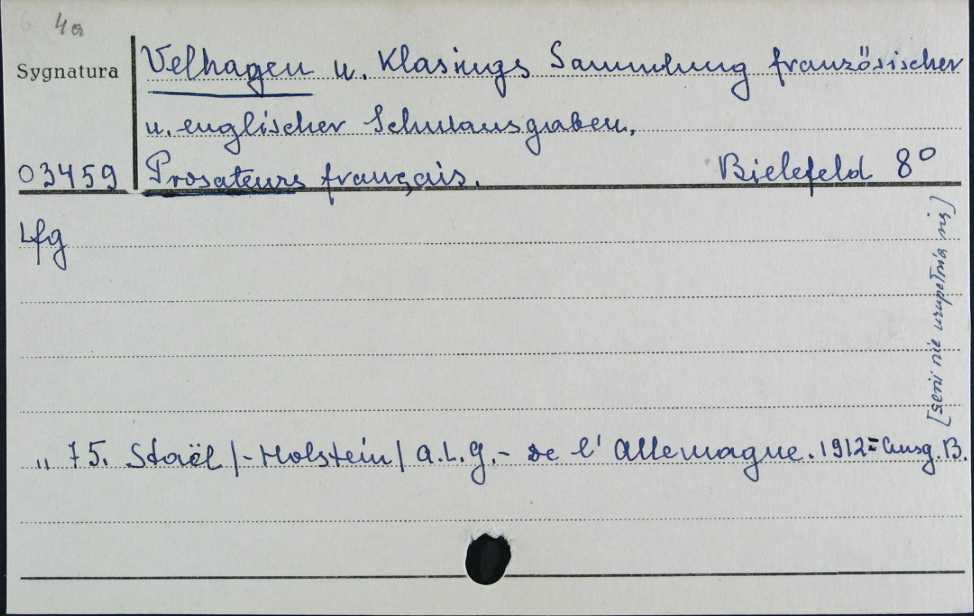 4a
Sygnatura
Velhagen u. Klasings Sammlung französischer
u. englischer Schulausgaben.
03459
Prosateurs français. Bielefeld 8°
Lfg
[serii nie uzupełnia się]
" 75. Staël /-Holstein/ A.L.G.- de l'Allemagne. 1912 = Ausg. B.